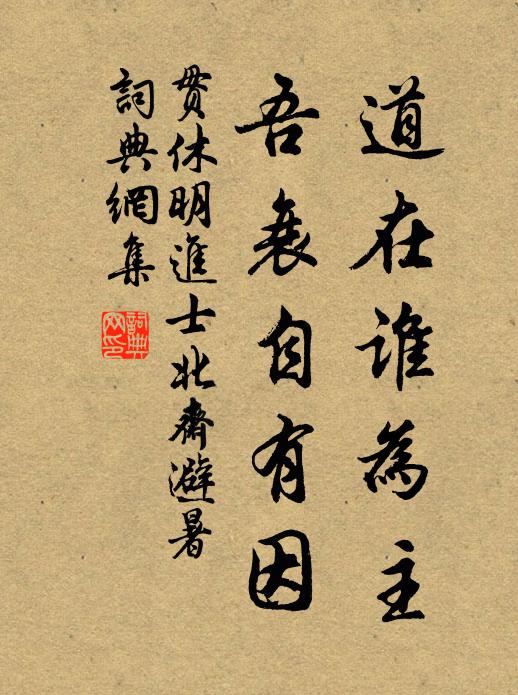 道在誰為主
吾衰自有因
貫休明進士北齋避暑
詞典網集
詞典网印